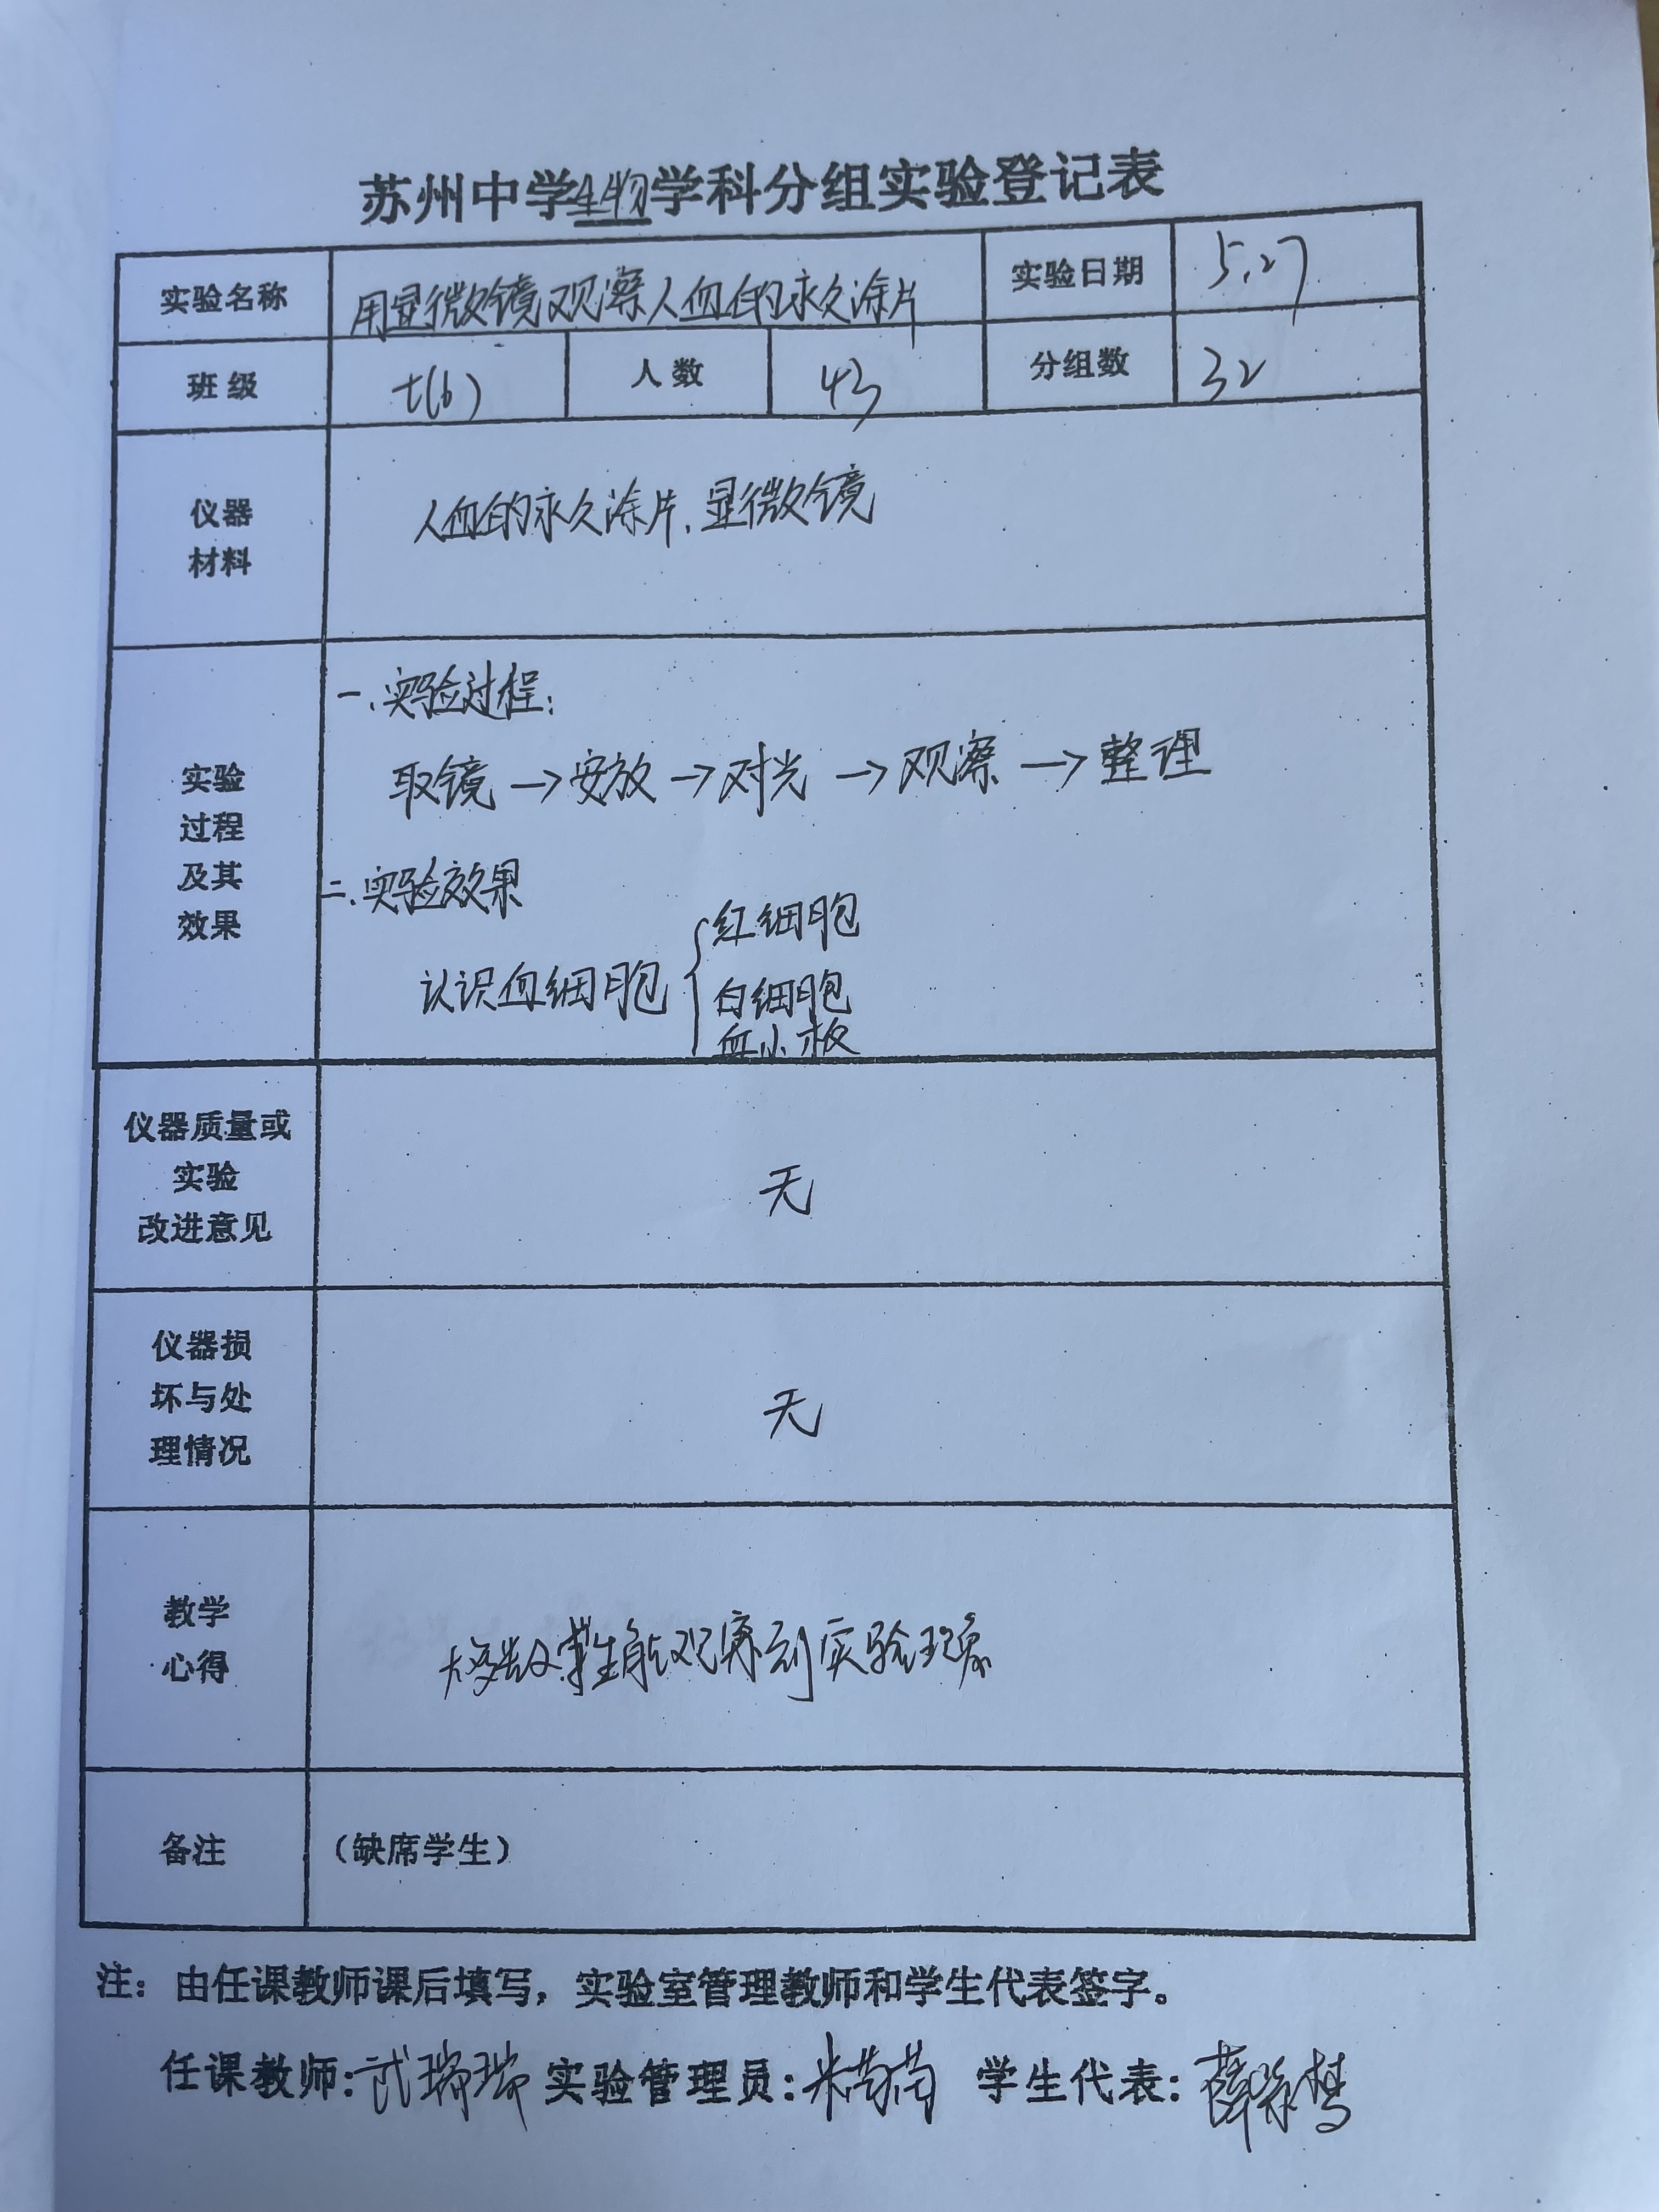 苏州中学生物学科分组实验登记表
实验名称 用显微镜观察人血的永久涂片 实验日期 5.27
班级 七(6) 人数 43 分组数 32
仪器
材料
人血的永久涂片、显微镜
实验
过程
及其
效果
一.实验过程:
取镜→安放→对光→观察→整理
二.实验效果
认识血细胞
红细胞
白细胞
血小板
仪器质量或
实验
改进意见
无
仪器损
坏与处
理情况
无
教学
心得
大多数学生能观察到实验现象
备注 (缺席学生)
注: 由任课教师课后填写, 实验室管理教师和学生代表签字。
任课教师: 武瑞瑞 实验管理员: 学生代表: